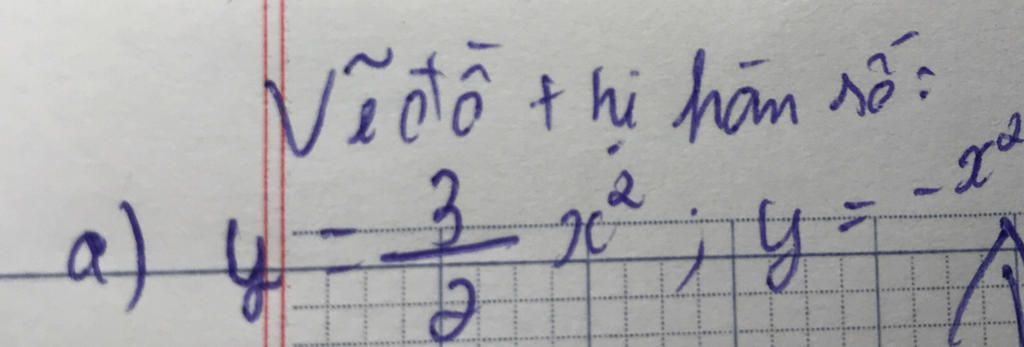 Vẽ đồ thị hàm số:
a) y = 3/2 x² ; y = -x²